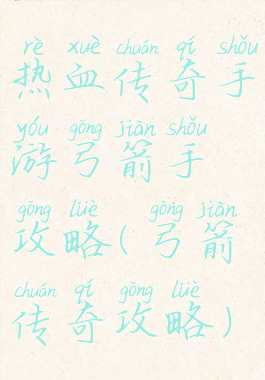 rè xuè chuán qí shǒu
热血传奇手
yóu gōng jiàn shǒu
游弓箭手
gōng lüè gōng jiàn
攻略(弓箭
chuán qí gōng lüè
传奇攻略)